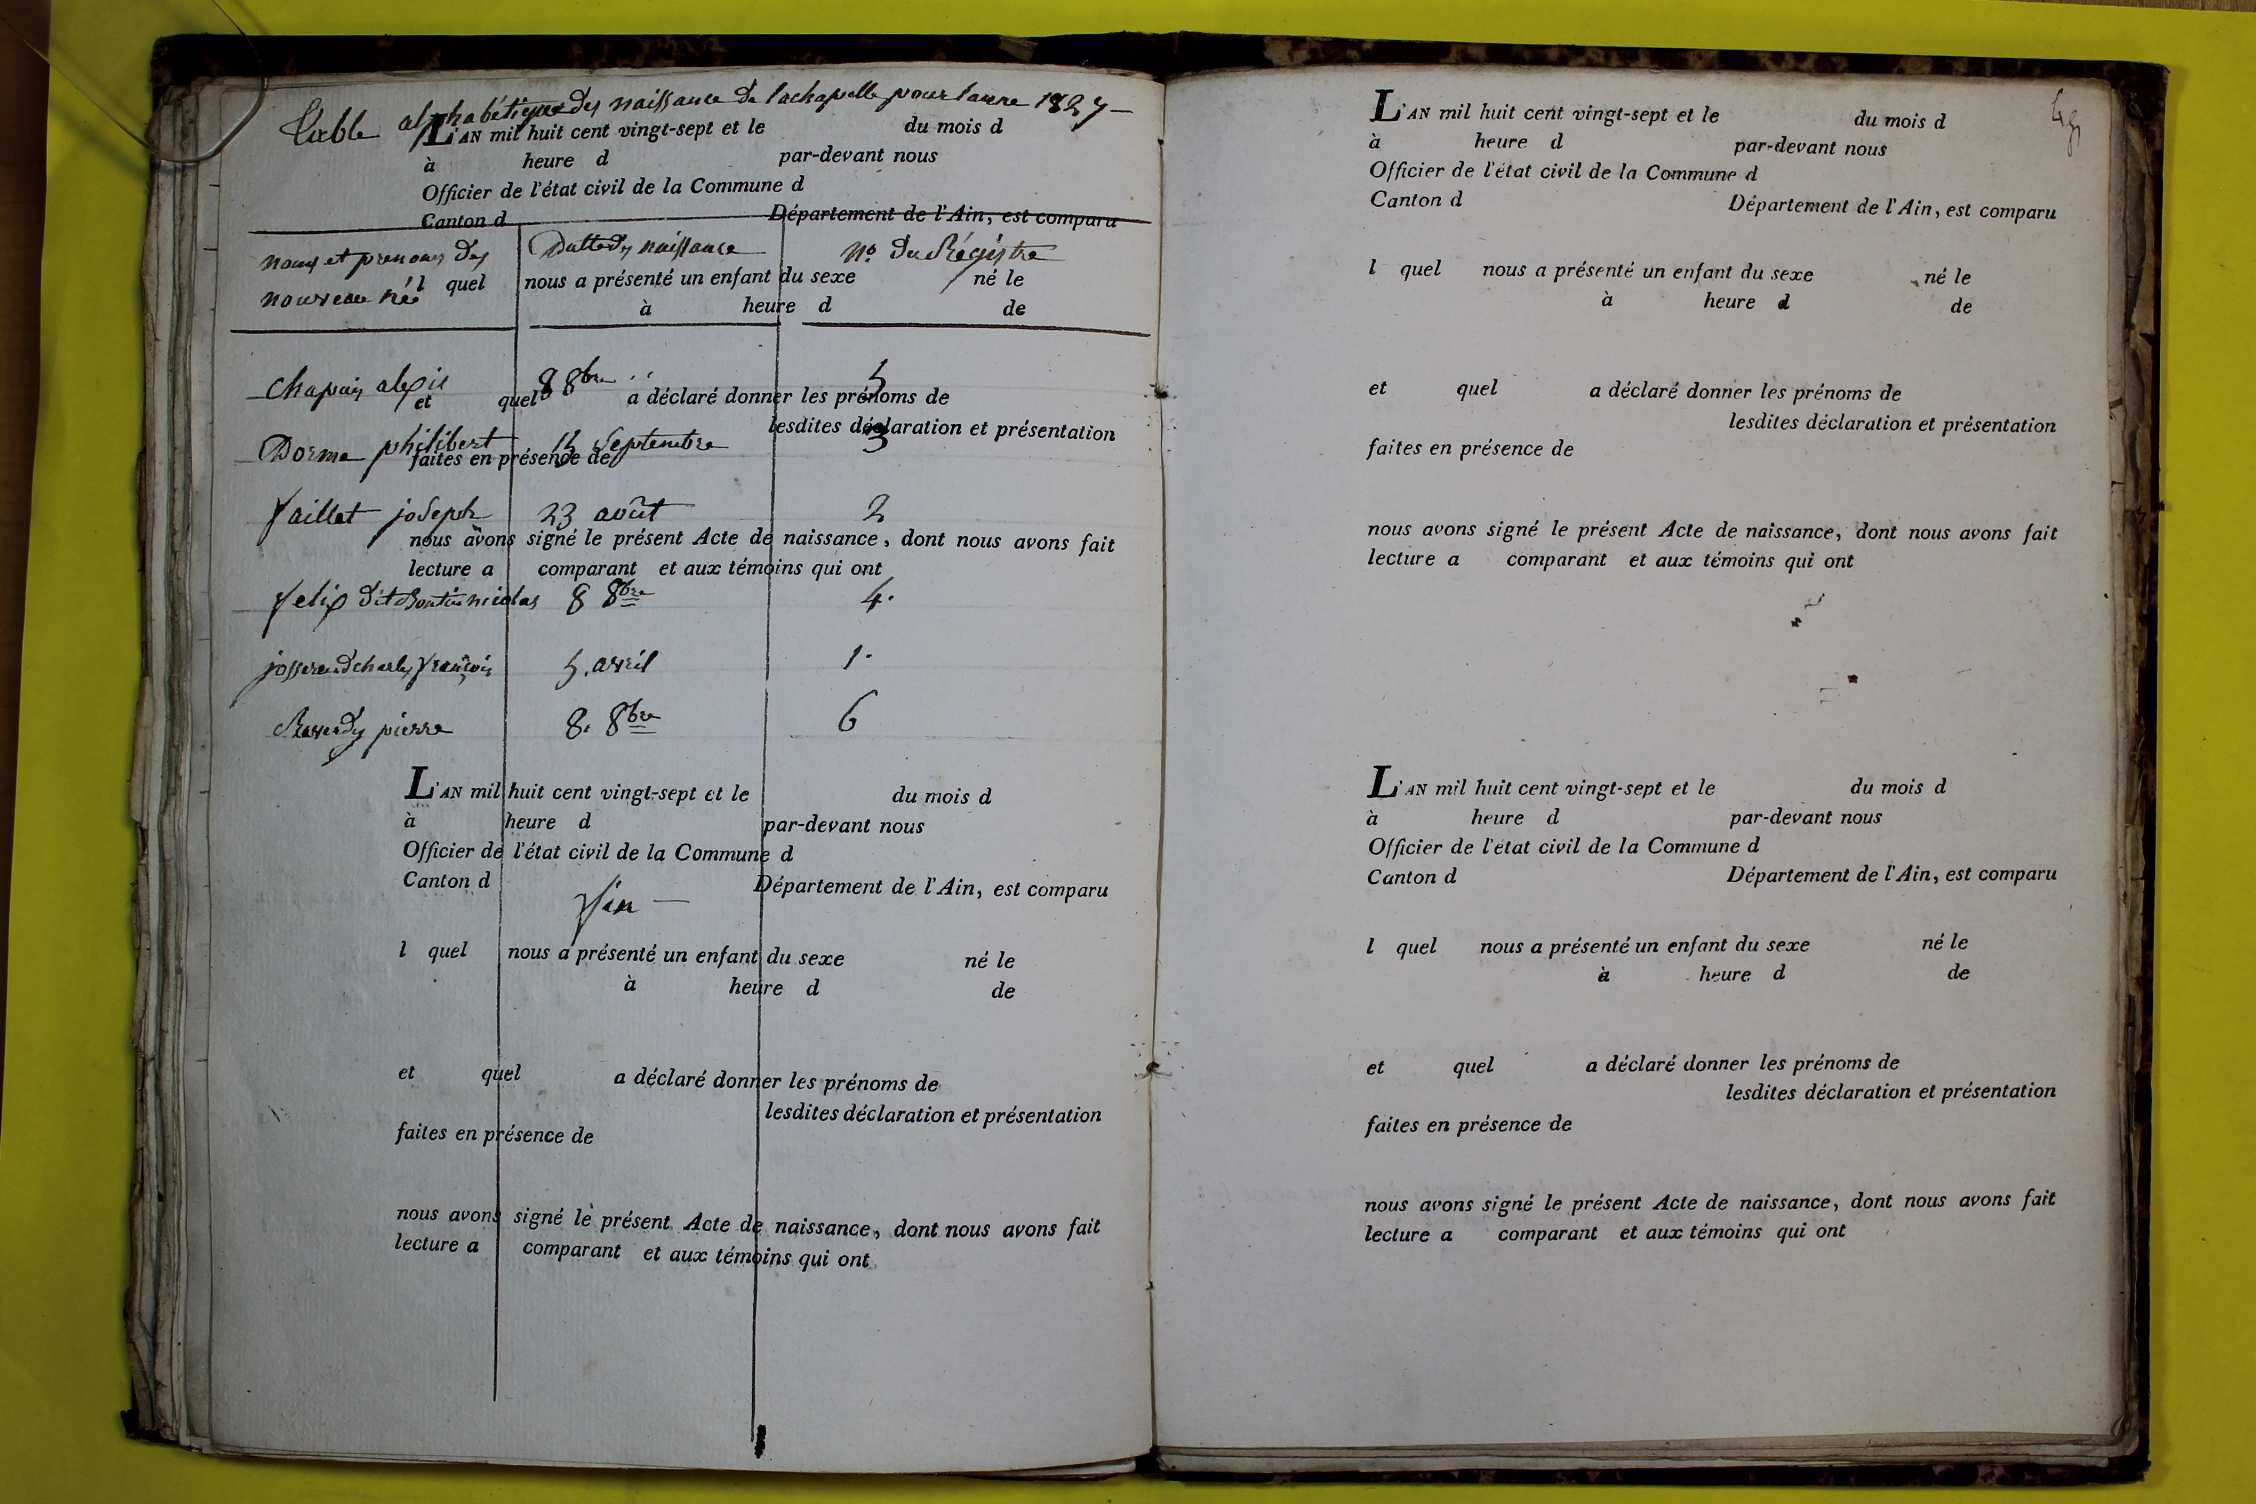 Table alphabétique des naissance de lachapelle pour lanne 1827 —
L'AN mil huit cent vingt-sept et le du mois d
à heure d par-devant nous
Officier de l'état civil de la Commune d
Canton d Département de l'Ain, est comparu
noms et prenoms des Datte des naissance N.º du Régistre
nouveau né
l quel nous a présenté un enfant du sexe né le
à heure d de
Chapuis alexis 8 8bre 5
et quel a déclaré donner les prénoms de
lesdites déclaration et présentation
Dorme philibert 15 Septembre 3
faites en présence de
faillet joseph 23 août 2
nous avons signé le présent Acte de naissance, dont nous avons fait
lecture a comparant et aux témoins qui ont
felix dit nicolas 8 8bre 4.
josserand charles françois 5. avril 1.
pierre 8. 8bre 6
L'AN mil huit cent vingt-sept et le du mois d
à heure d par-devant nous
Officier de l'état civil de la Commune d
Canton d Département de l'Ain, est comparu
fin —
l quel nous a présenté un enfant du sexe né le
à heure d de
et quel a déclaré donner les prénoms de
lesdites déclaration et présentation
faites en présence de
nous avons signé le présent Acte de naissance, dont nous avons fait
lecture a comparant et aux témoins qui ont
L'AN mil huit cent vingt-sept et le du mois d
à heure d par-devant nous
Officier de l'état civil de la Commune d
Canton d Département de l'Ain, est comparu
l quel nous a présenté un enfant du sexe né le
à heure d de
et quel a déclaré donner les prénoms de
lesdites déclaration et présentation
faites en présence de
nous avons signé le présent Acte de naissance, dont nous avons fait
lecture a comparant et aux témoins qui ont
L'AN mil huit cent vingt-sept et le du mois d
à heure d par-devant nous
Officier de l'état civil de la Commune d
Canton d Département de l'Ain, est comparu
l quel nous a présenté un enfant du sexe né le
à heure d de
et quel a déclaré donner les prénoms de
lesdites déclaration et présentation
faites en présence de
nous avons signé le présent Acte de naissance, dont nous avons fait
lecture a comparant et aux témoins qui ont